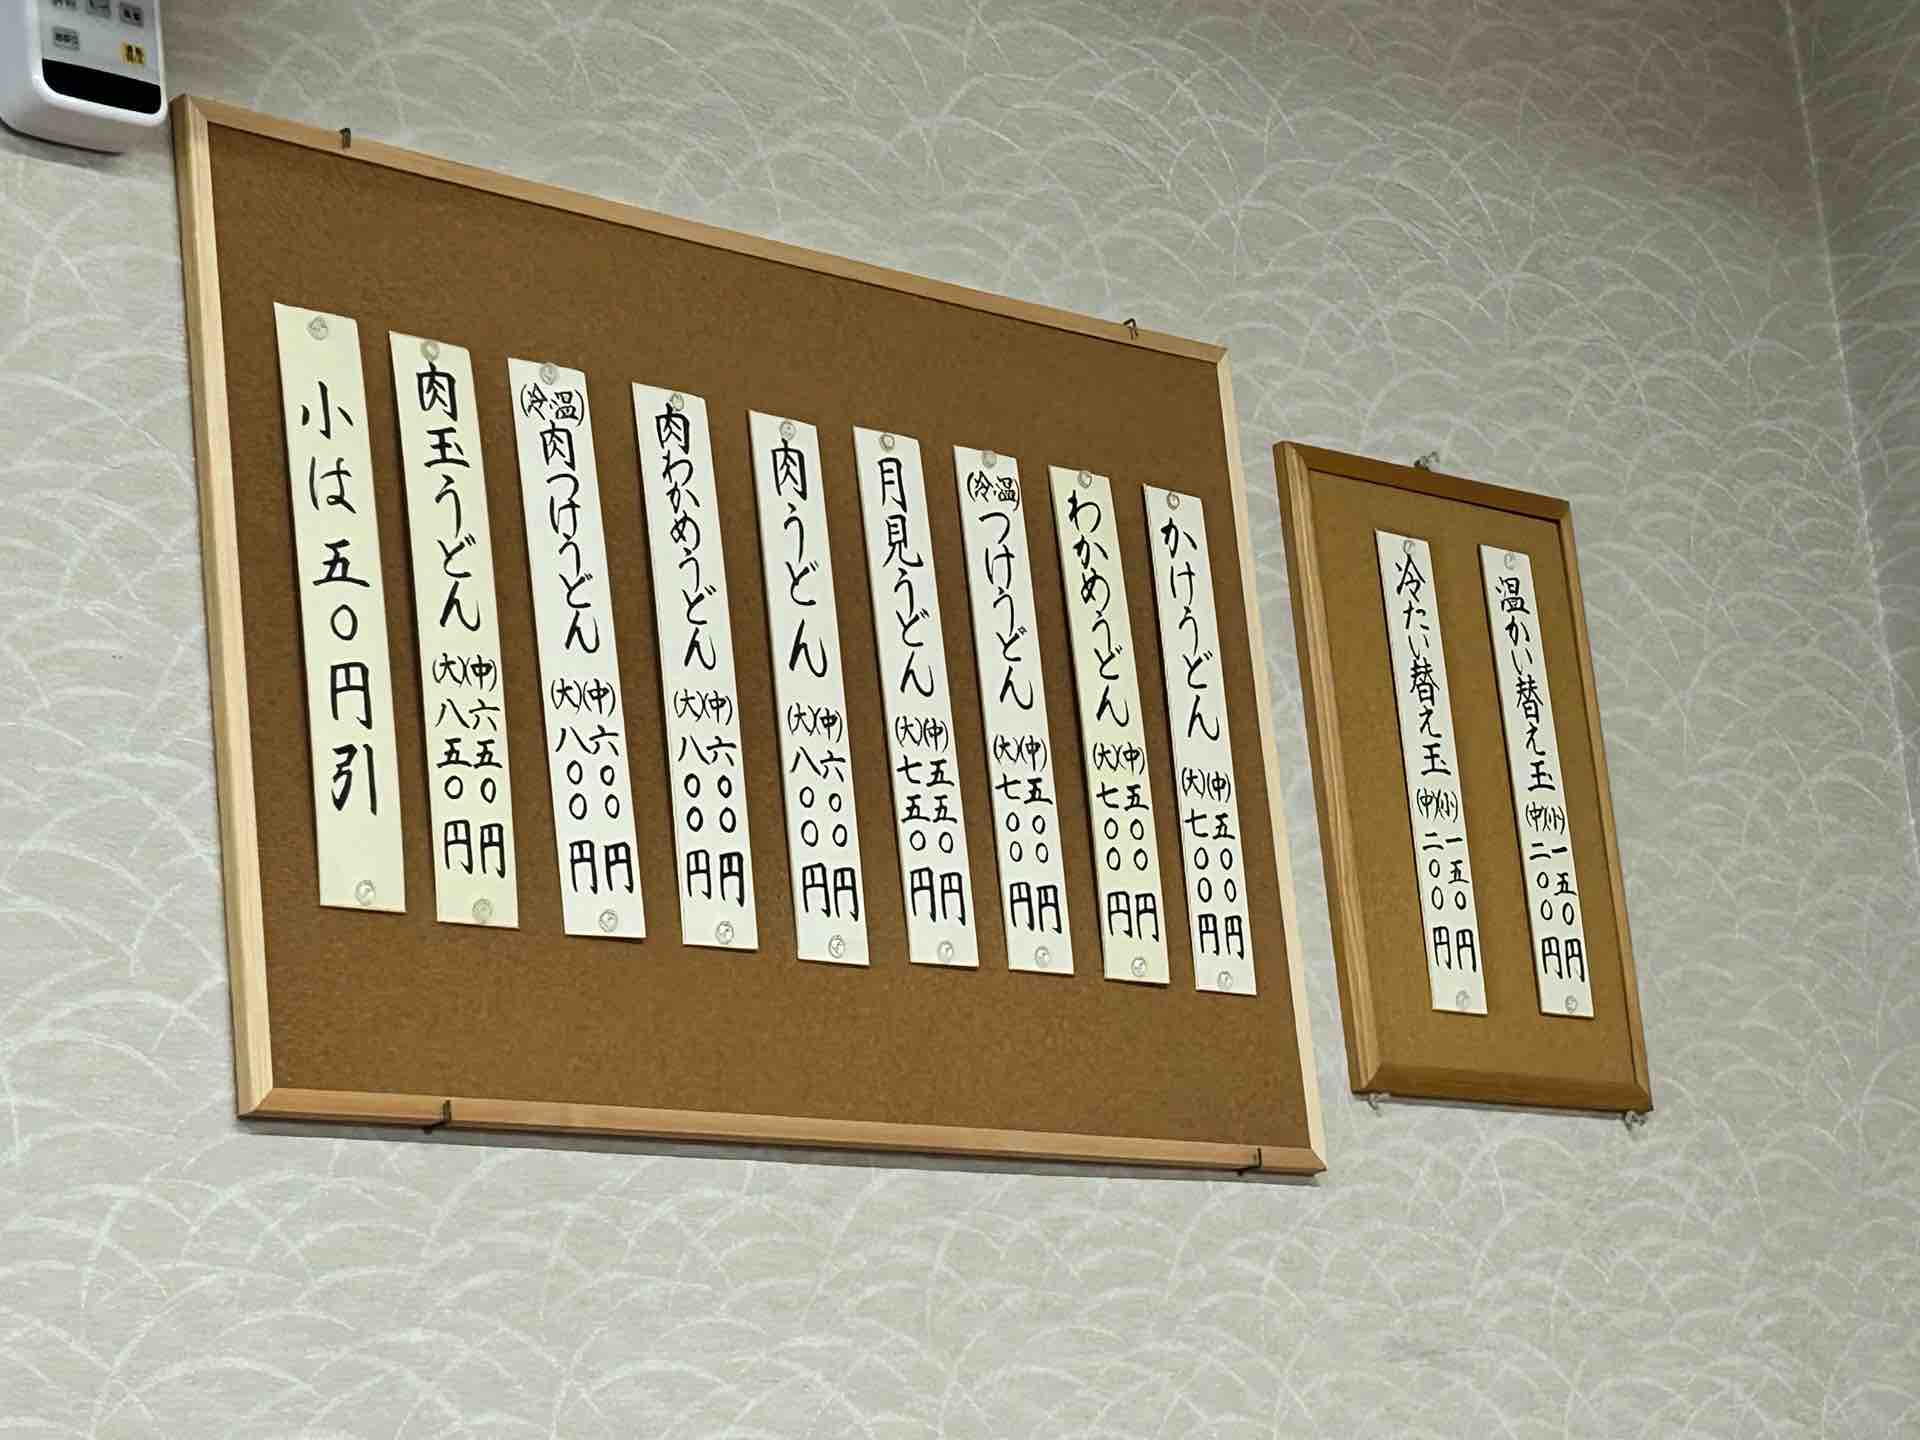 温かい替え玉 (小)一五〇円
(中)二〇〇円
冷たい替え玉 (小)一五〇円
(中)二〇〇円
かけうどん (中)五〇〇円
(大)七〇〇円
わかめうどん (中)五〇〇円
(大)七〇〇円
(冷・温)つけうどん (中)五〇〇円
(大)七〇〇円
月見うどん (中)五五〇円
(大)七五〇円
肉うどん (中)六〇〇円
(大)八〇〇円
肉わかめうどん (中)六〇〇円
(大)八〇〇円
(冷・温)肉つけうどん (中)六〇〇円
(大)八〇〇円
肉玉うどん (中)六五〇円
(大)八五〇円
小は五〇円引